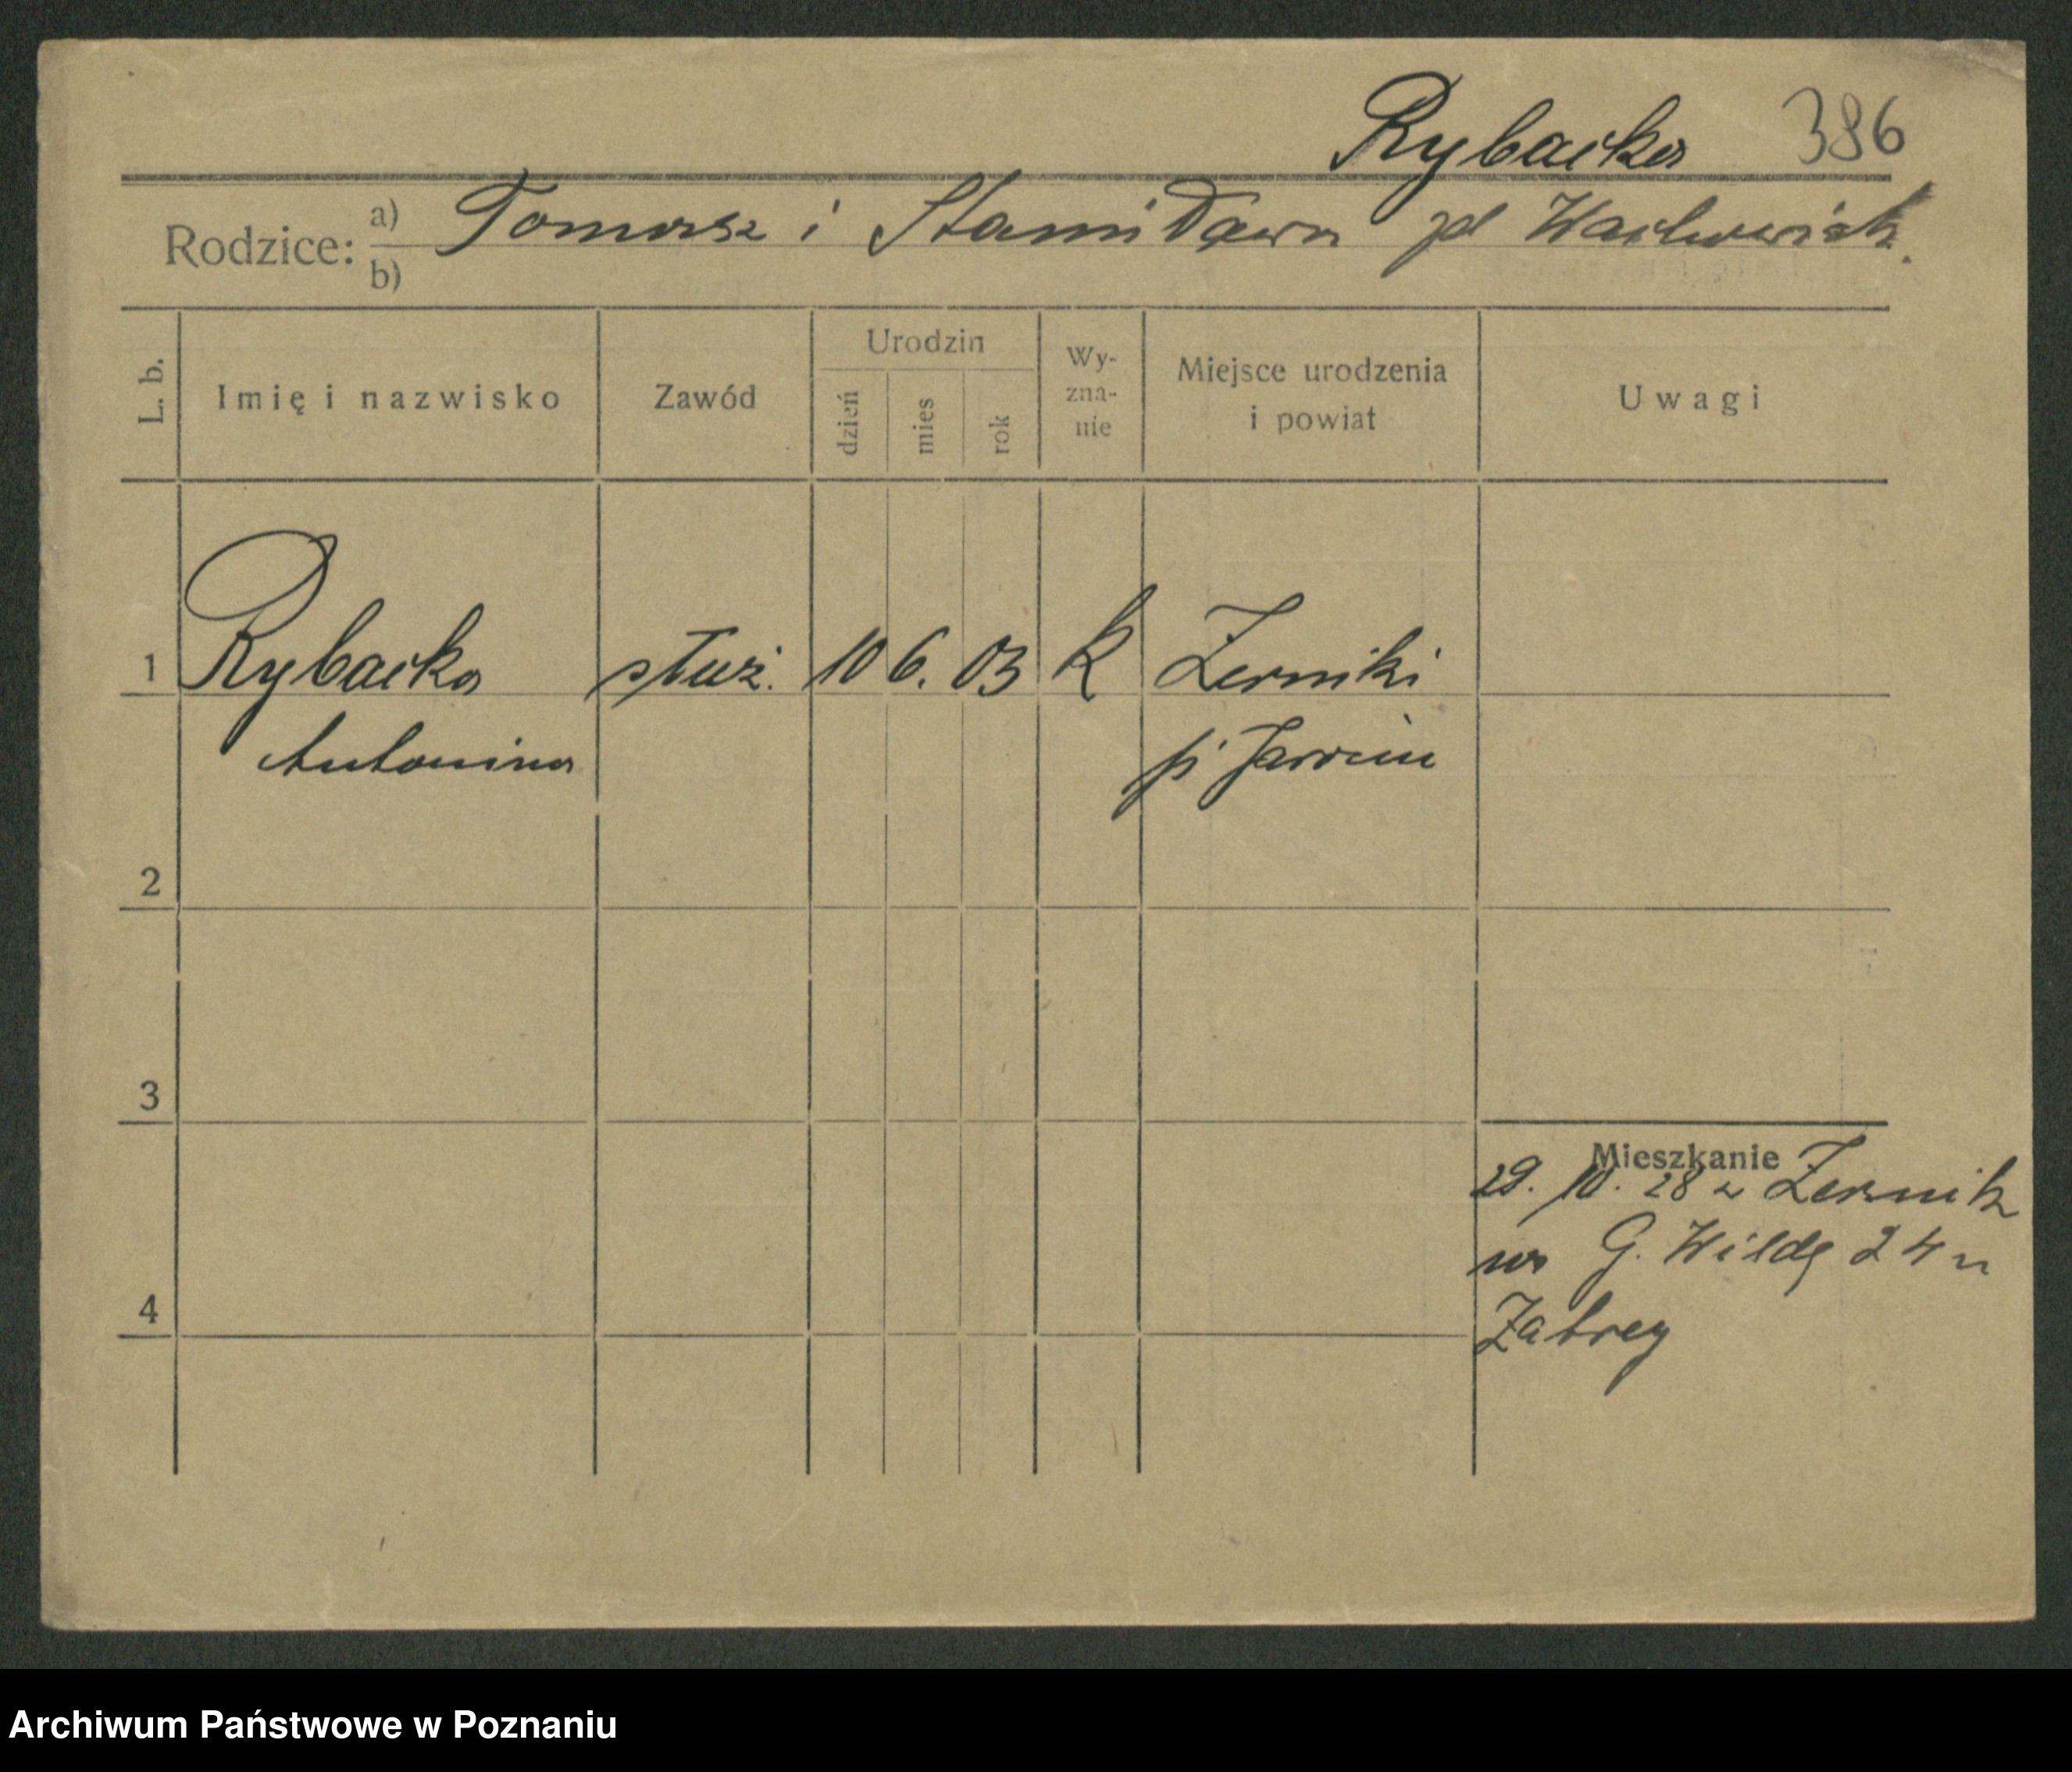 Rybacka 386
Rodzice: a) Tomasz i Stanisława zd
b)
L. b. Imię i nazwisko Zawód Urodzin dzień mies rok Wy-zna-nie Miejsce urodzenia i powiat Uwagi
1 Rybacka służ. 10 6. 03 k Żerniki
Antonina p. Jarocin
2
3
Mieszkanie
29. 10. 28 z Żernik
na G. Wildę 24 u
4
Archiwum Państwowe w Poznaniu